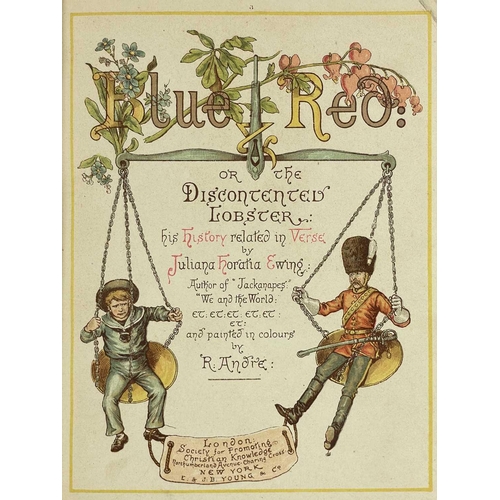 Blue & Red:
or the
Discontented
Lobster:
his History related in Verse
by
Juliana Horatia Ewing:
Author of "Jackanapes:"
"We and the World:
et: et: et: et: et:
et:
and painted in colours
by
R. André:
London
Society for Promoting
Christian Knowledge
Northumberland Avenue Charing Cross
NEW YORK
E. & J.B. YOUNG & Co